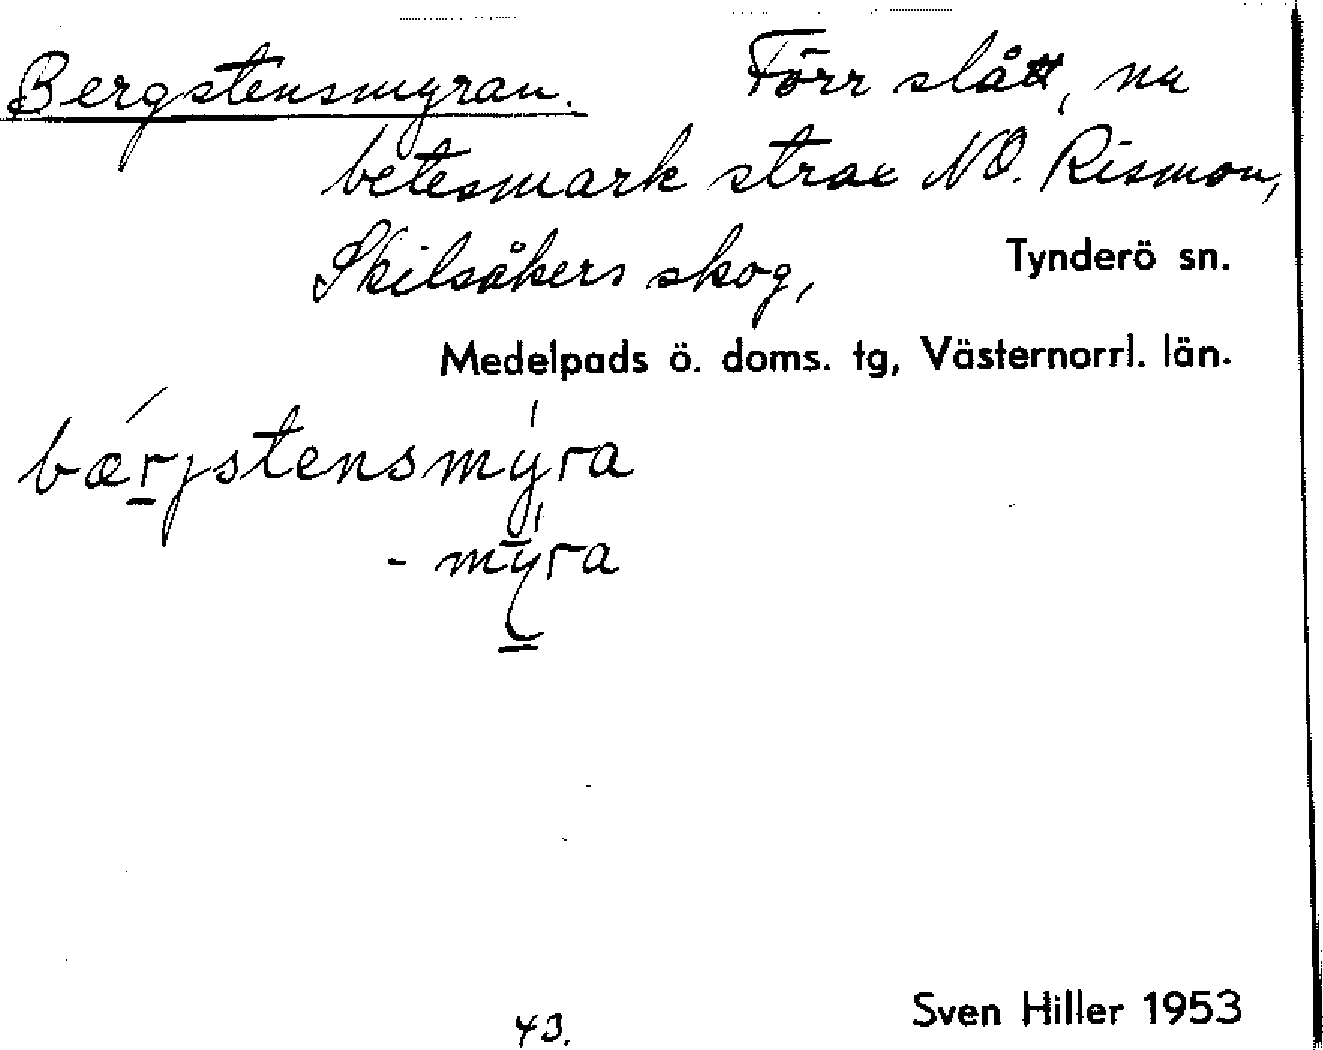 Bergstensmyran. Förr slått, nu
betesmark strax NO. Rismon,
Skilsåkers skog, Tynderö sn.
Medelpads ö. doms. tg, Västernorrl. län.
bærjstensmyra
- myra
43.
Sven Hiller 1953